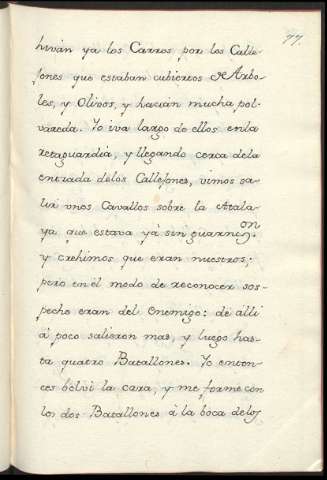 77.
hiván ya los Carros, por los Calle-
jones que estaban cubiertos de Arbo-
les, y Olivos, y hacian mucha pol-
vareda. Yo iva largo de ellos enla
retaguardia, y llegando cerca dela
entrada delos Callejones, vimos sa-
lir unos Cavallos sobre la Atala-
ya que estava yá sin guarniz.on
y crehimos que eran nuestros;
pero en èl modo de reconocer sos-
pecho eran del Enemigo: de álli
á poco salieron mas, y luego has-
ta quatro Batallones. Yo enton-
ces bolvi la cara, y me forme con
los dos Batallones à la boca delos